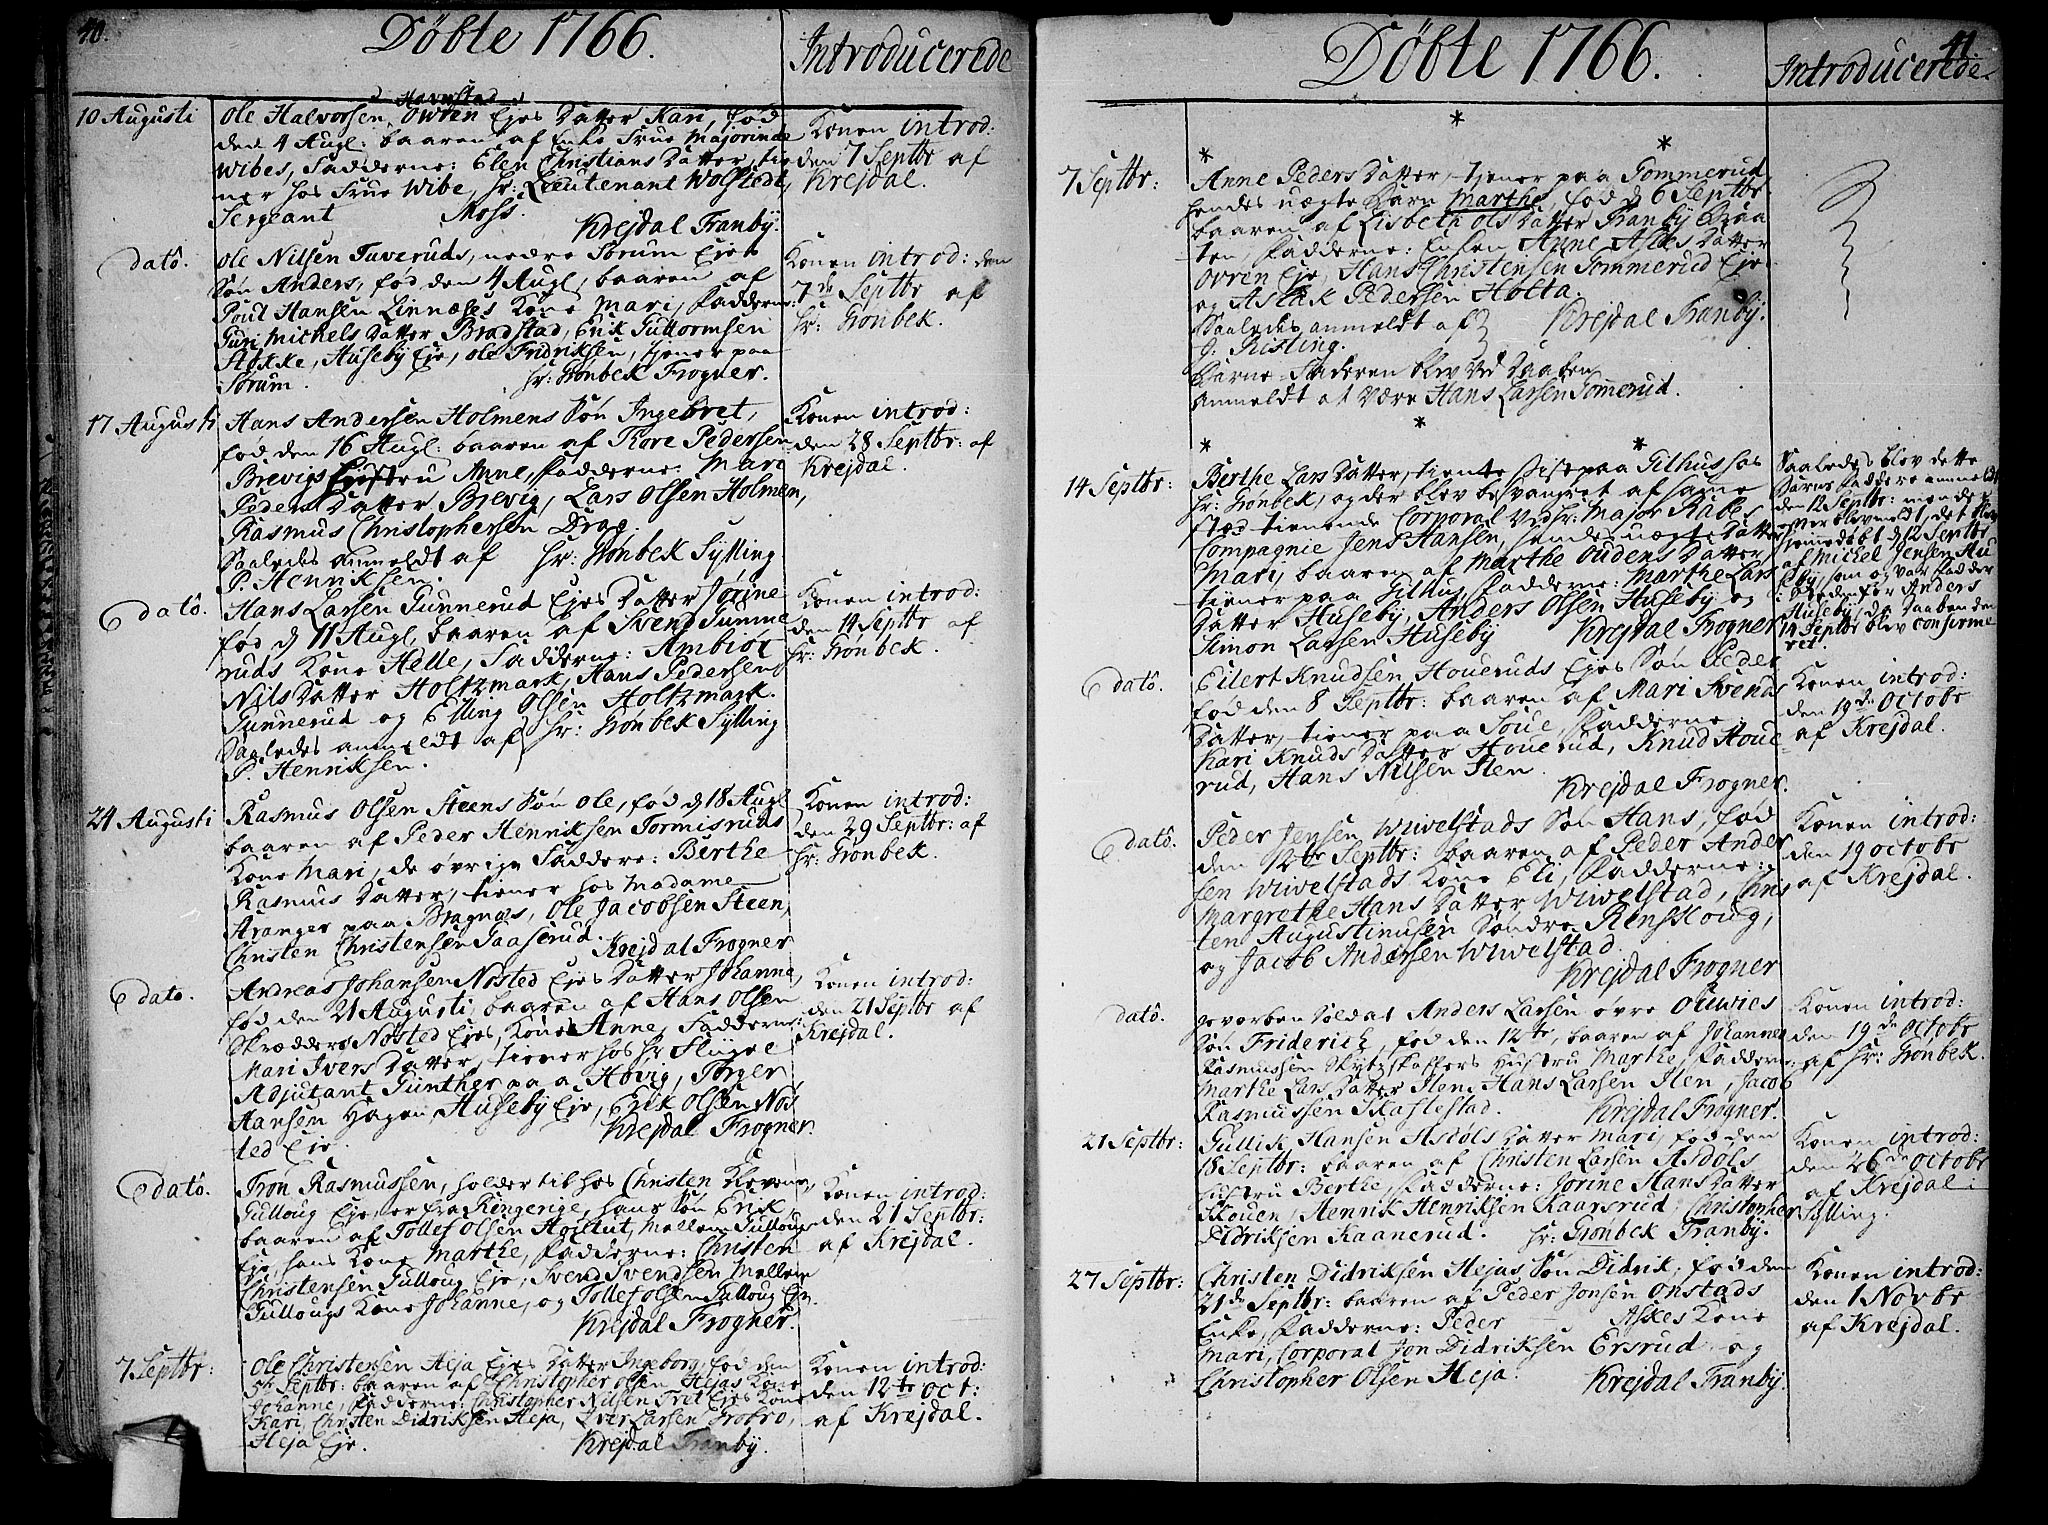 40.
Döbte 1766.
Introducerede
10 Augusti
Havrstad
Ole Halvorsen Owren Ejes Datter Kari, fød
den 4 Augl: baaren af Enke Frue Majorinde
Wibes, Fadderne: Elen Christians Datter, tie
ner hos Frue Wibe, hr: Lieutenant Wolstedt,
Sergeant Moss.
Krejdal Tranby.
Konen introd:
den 7 Septbr af
Krejdal.
dato.
Ole Nilsen Tuveruds, nedre Sørum Ejes
Søn Anders, fød den 4 Augl, baaren af
Poul Hansen Linnæses Kone Mari, Fadderne:
Guri Michels Datter Bradstad, Erik Guttormsen
Støkke, Huseby Eje, Ole Fridriksen, tjener paa
Sørum.
hr: Grønbek Frogner.
Konen introd: den
7de Septbr af
hr: Grønbek.
17 Augusti
Hans Andersen Holmens Søn Ingebret,
fød den 16 Augl: baaren af Thore Pedersen
Brevigs Hustru Anne, Fadderne: Mari
Peders Datter Brevig, Lars Olsen Holmen,
Rasmus Christophersen Drag.
Saaledes anmeldt af hr: Grønbek Sylling
P. Henriksen.
Konen introd:
den 28 Septbr: af
Krejdal.
dato.
Hans Larsen Gunnerud Ejes Datter Jørine
fød d 11 Augl, baaren af Svend Gunne
ruds Kone Helle, Fadderne: Ambiør
Nils Datter Holtzmark, Hans Pedersen
Gunnerud og Elling Olsen Holtzmark.
Saaledes anmeldt af hr: Grønbek Sylling
P. Henriksen.
Konen introd:
den 14 Septbr af
hr: Grønbek.
24 Augusti
Rasmus Olsen Steens Søn Ole, fød d 18 Augl
baaren af Peder Henriksen Tormisruds
Kone Mari, de øvrige Faddere: Berthe
Rasmus Datter, tiener hos Madame
Stranger paa Bragnæs, Ole Jacobsen Steen,
Christen Christensen Gaaserud.
Krejdal Frogner
Konen introd:
den 29 Septbr: af
hr: Grønbek.
dato.
Andreas Johansen Nøsted Ejes Datter Johanne,
fød den 21 Augusti, baaren af Hans Olsen
Skrædders Nøsted Ejes, Kone Anne, Fadderne:
Mari Ivers Datter, tiener hos hr Flügel
Adjutant Günther paa Høvig, Torger
Hansen Hagen, Huseby Eje, Erik Olsen Nøs
ted Eje.
Krejdal Frogner.
Konen introd:
den 21 Septbr af
Krejdal.
dato.
Tron Rasmussen, holder til hos Christen Klevene,
Gulloug Eje, er fra Ringerige, hans Søn Erik,
baaren af Tollef Olsen Holtut, Mellem Gulloug
Eje, hans Kone Marthe, Fadderne: Christen
Christensen Gulloug Eje, Svend Svendsen Mellem
Gullougs Kone Johanne, og Tollef Olsen Gulloug Eje.
Krejdal Frogner.
Konen introd:
den 21 Septbr:
af Krejdal.
7 Septbr:
Ole Christensen Heja Ejes Datter Ingeborg, fød den
5te Septbr: baaren af Christopher Olsen Hejas Kone
Johanne, Fadderne: Christopher Nilsen Tret Ejes Kone
Kari, Christen Didriksen Heja, Iver Larsen Grobro,
Heja Eje.
Krejdal Tranby.
Konen introd:
den 12te Oct:
af Krejdal.
41.
Döbte 1766.
Introducerede.
7 Septbr:
Anne Peders Datter, tjener paa Gommerud,
hendes uægte Barn Marthe, fød d 6 Septbr
baaren af Lisbeta Ols Datter Tranby Braa
ten, Fadderne: Enken Anne Asles Datter
Ovren Eje, Hans Christensen Gommerud Eje
og Aslak Pedersen Holta.
Saaledes anmeldt af Krejdal Tranby.
J. Risting.
Barne-Faderen blev ved Daaben
anmeldt at være Hans Larsen Gomerud.
14 Septbr:
Berthe Lars Datter, tiente sist paa Gilhus hos
hr: Grønbek, og der blev besvangret af samme
sted tienende Corporal ved hr: Major Rabes
Compagnie Jens Hansen, hendes uægte Datter
Mari, baaren af Marthe Oudens Datter
tiener paa Gilhus, Fadderne: Marthe Lars
Datter Huseby, Anders Olsen Huseby og
Simon Larsen Huseby
Krejdal Frogner
Saaledes blev dette
Barns Faddere anmeldt
den 12 Septbr: men der
efter blev meldt, det blev
hjemmedøbt d 12 Septbr
af Michel Jensen Hu
seby, som og var Fadder
i steden for Anders
Huseby, da Daaben den
14 Septbr blev confirme
ret.
dato.
Eilert Knudsen Houeruds Ejes Søn Peder
fød den 8 Septbr: baaren af Mari Svends
Datter, tiener paa Soue, Fadderne:
Kari Knuds Datter Houerud, Knud Houe
rud, Hans Nilsen Ilen.
Krejdal Frogner.
Konen introd:
den 19de Octobr
af Krejdal.
dato.
Peder Jensen Wivelstads Søn Hans, fød
den 12te Septbr: baaren af Peder Ander
sen Wivelstads Kone Eli, Fadderne:
Margrethe Hans Datter Wivelstad, Chris
ten Augustinusen Søndre Renskoug,
og Jacob Andersen Wivelstad.
Krejdal Frogner
Konen introd:
den 19 Octobr
af Krejdal.
dato.
Gevorben Soldat Anders Larsen øvre Ouwies
Søn Friderich, fød den 12te, baaren af Johannes
Rasmussen Skytzskaffers Hustru Marthe, Fadderne:
Marthe Lars Datter Ilen, Hans Larsen Ilen, Jacob
Rasmussen Skaftestad.
Krejdal Frogner.
Konen introd:
den 19de Octobr
af hr: Grønbek.
21 Septbr:
Gullik Hansen Asdøls Datter Mari, fød den
18 Septbr: baaren af Christen Larsen Asdøls
Hustru Berthe, Fadderne: Jørine Hans Datter
Skouen, Henrik Henriksen Kaarsrud, Christopher
Didriksen Kaanerud. hr: Grønbek Tranby.
Konen introd:
den 26de Octobr
af Krejdal:
Sylling.
27 Septbr:
Christen Didriksen Hejas Søn Didrik, fød den
21de Septbr: baaren af Peder Jonsen Onstads
Enke, Fadderne: Peder Askes Kone
Mari, Corporal Jon Didriksen Ersrud og
Christopher Olsen Heja.
Krejdal Tranby.
Konen introd:
den 1 Novbr
af Krejdal.